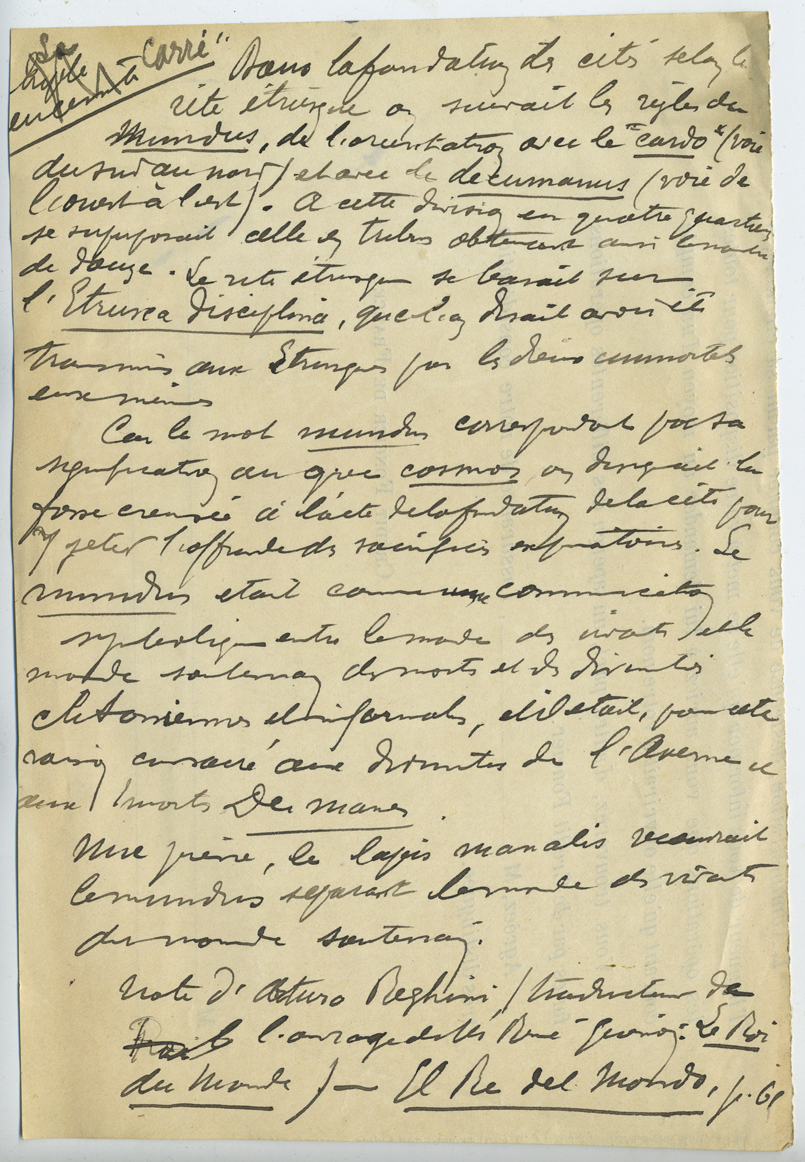 La
triple
enceinte
"Carré"
Dans la fondation des cités selon le
rite étrusque on suivait les règles du
Mundus, de l'orientation avec le "cardo" (voie
du sud au nord) et avec le decumanus (voie de
l'ouest à l'est). A cette division en quatre quartiers
se superposait celle en tribus obtenant ainsi le nombre
de douze. Le rite étrusque se basait sur
l'Etrusca disciplina, que l'on disait avoir été
transmis aux Etrusques par les dieux immortels
eux mêmes
Car le mot mundus correspondait par sa
signification au grec cosmos on désignait la
fosse creusée à l'acte de la fondation de la cité pour
y jeter l'offrande des sacrifices expiatoires. Le
mundus etait comme une communication
symbolique entre le monde des vivants et le
monde souterrain des morts et des divinités
chtoniennes et infernales, et il était, pour cette
raison consacré aux divinités de l'Averne et
aux morts Dei manes
Une pierre, le lapis manalis recouvrait
le mundus séparant le monde des vivants
du monde souterrain.
Note d'Arturo Reghini (traducteur de
l'ouvrage de Mr René Guénon: Le Roi
du Monde) — Il Re del Mondo, p. 61